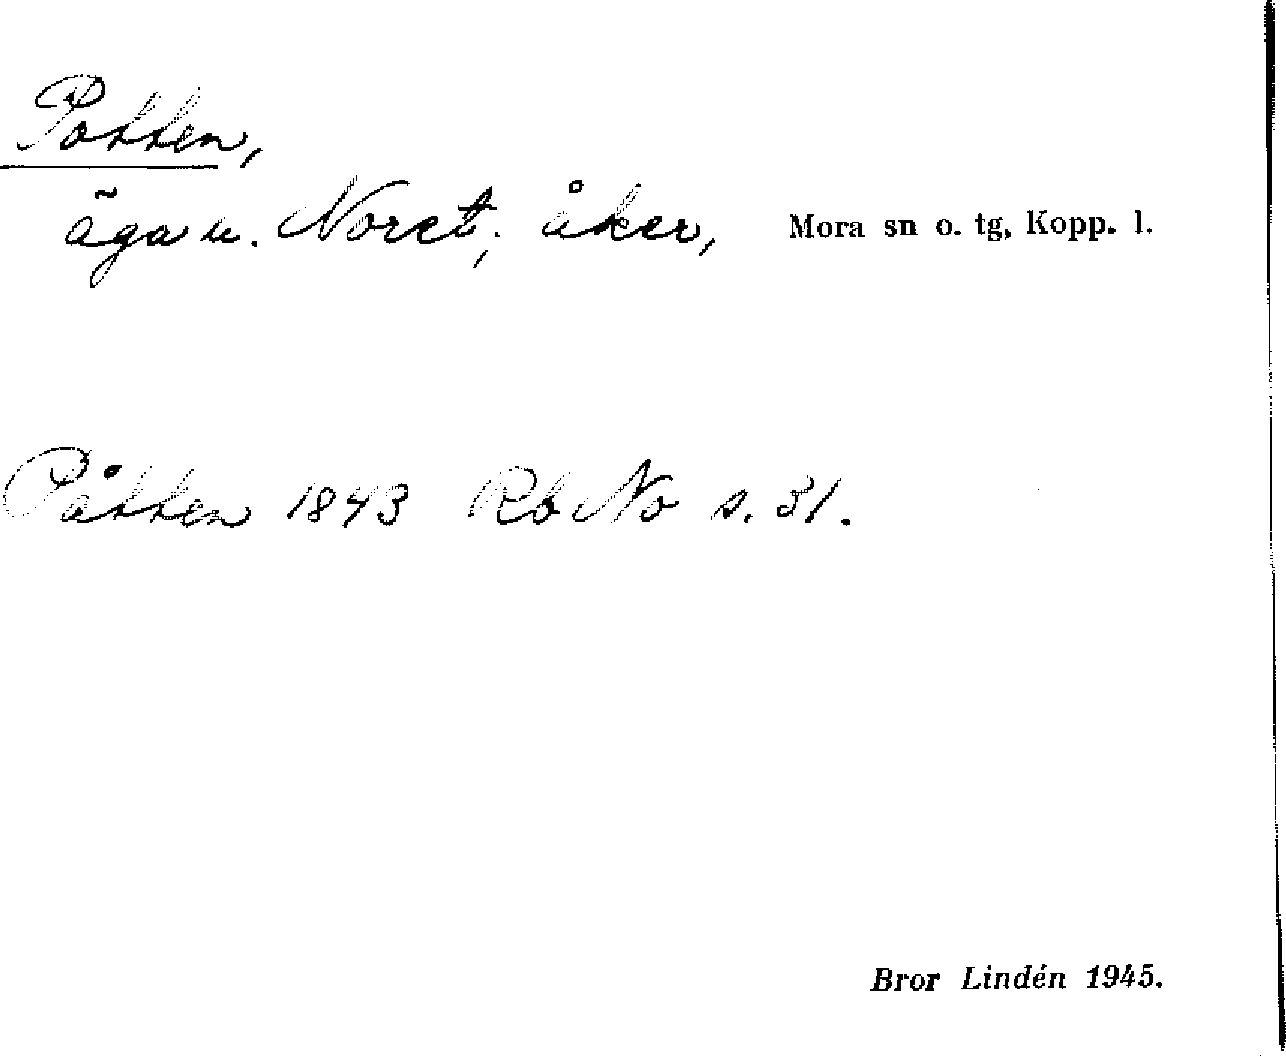 Potten,
äga u. Noret; åker, Mora sn o. tg, Kopp. l.
Påtten 1843 Rb No s. 31.
Bror Lindén 1945.